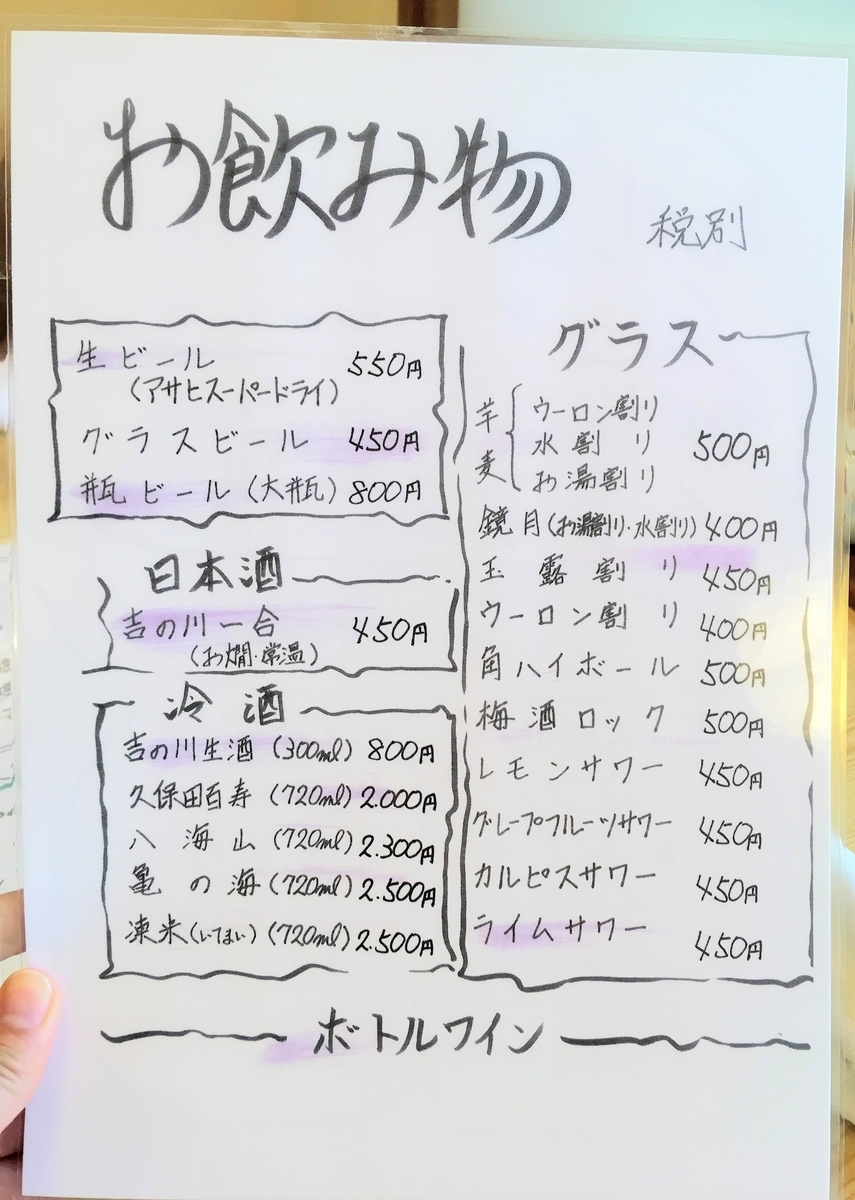 お飲み物
税別
生ビール 550円
（アサヒスーパードライ）
グラスビール 450円
瓶ビール（大瓶） 800円
日本酒
吉の川一合 450円
（お燗・常温）
冷酒
吉の川生酒（300ml） 800円
久保田百寿（720ml） 2.000円
八海山（720ml） 2.300円
亀の海（720ml） 2.500円
凍米（いてまい）（720ml） 2.500円
グラス
芋 麦 { ウーロン割り
水割り 500円
お湯割り
鏡月（お湯割り・水割り） 400円
玉露割り 450円
ウーロン割り 400円
角ハイボール 500円
梅酒ロック 500円
レモンサワー 450円
グレープフルーツサワー 450円
カルピスサワー 450円
ライムサワー 450円
ボトルワイン